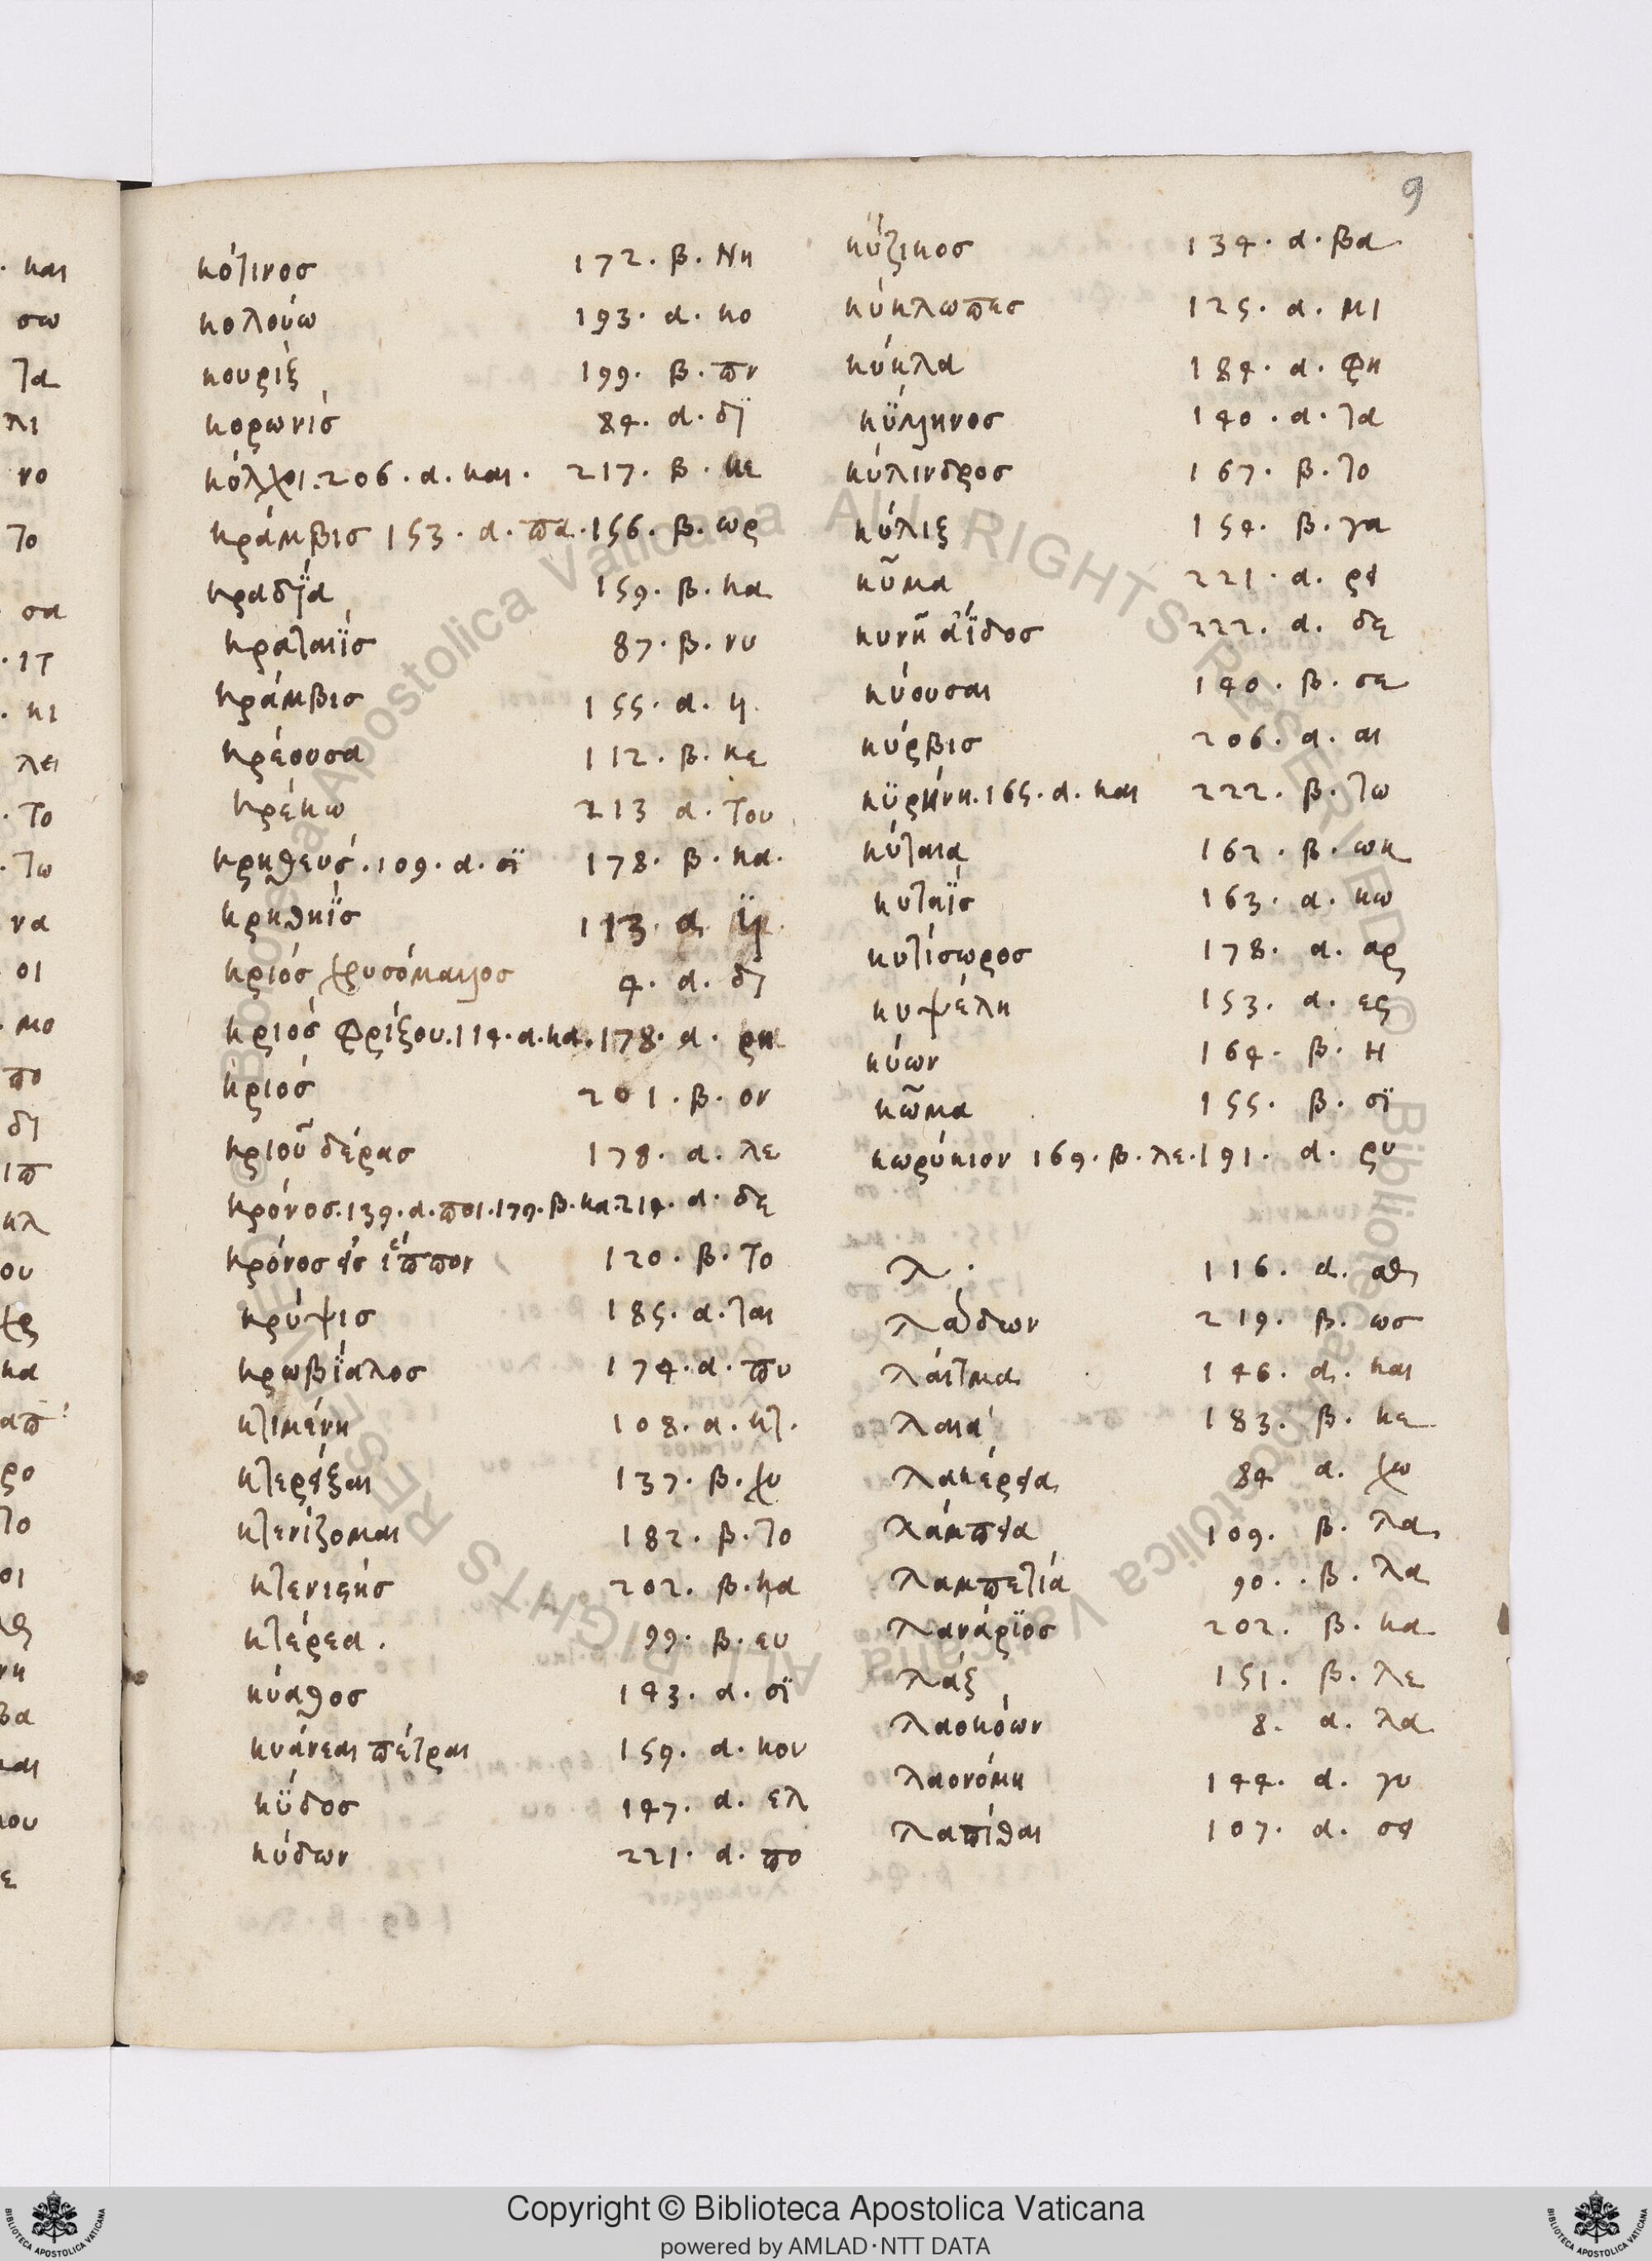 9
κότινος 172. β. Νη
κολούω 193. α. κο
κουρίξ 199. β. πν
κορωνίσ 84. α. δϊ
κόλχοι. 206. α. και. 217. β. κε
κράμβισ 153. α. πα. 156. β. ωρ
κραδΐα 159. β. κα
κραταιΐσ 87. β. νυ
κράμβισ 155. α. η
κρέουσα 112. β. κε
κρέκω 213 α. του
κρηθευσ. 109. α. σϊ 178. β. κα.
κρηθηΐσ 113. α.
κριόσ χρυσόμαλλος 4. α. δι
κριόσ φρίξου. 114. α. κα. 178. α. ρη
κριόσ 201. β. ον
κριοῦ δέρασ 178. α. λε
κρόνοσ. 139. α. ποι. 179. β. κα. 214. α. δε
κρόνοσ εἰσ ἵππον 120. β. το
κρύψισ 185. α. ται
κρωβΐαλοσ 174. α. πυ
κτιμένη 108. α. κτ.
κτερεΐξαι 137. β. χυ
κτενίζομαι 182. β. το
κτενιεῖσ 202. β. κα
κτέρεα. 99. β. ευ
κύαθοσ 143. α. σϊ
κυάνεαι πέτραι 159. α. κου
κΰδοσ 147. α. ελ
κύδων 221. α. πο
κύζικοσ 134. α. βα
κύκλωπεσ 125. α. μι
κύκλα 184. α. φη
κΰλληνοσ 140. α. τα
κύλινδροσ 167. β. το
κύλιξ 154. β. γα
κῦμα 221. α. ρει
κυνῆ ἀΐδοσ 222. α. δε
κύουσαι 140. β. σε
κύρβισ 206. α. αι
κϋρήνη. 165. α. και 222. β. τω
κύταια 162. β. ωκ
κυταΐσ 163. α. κω
κυτίσωροσ 178. α. αρ
κυψέλη 153. α. ες
κύων 164. β. Η
κῶμα 155. β. σϊ
κωρύκιον 169. β. λε. 191. α. ρυ
λ. 116. α. αθ
λάδων 219. β. ωσ
λαῖτμα 146. α. και
λαιά 183. β. κε
λακέρεια 84 α. χω
λάμπεια 109. β. λα
λαμπετία 90. β. λα
λανάρϊοσ 202. β. κα
λάξ 151. β. λε
λαοκόων 8. α. λα
λαονόμη 144. α. γυ
λαπίθαι 107. α. σει
Copyright © Biblioteca Apostolica Vaticana
powered by AMLAD·NTT DATA